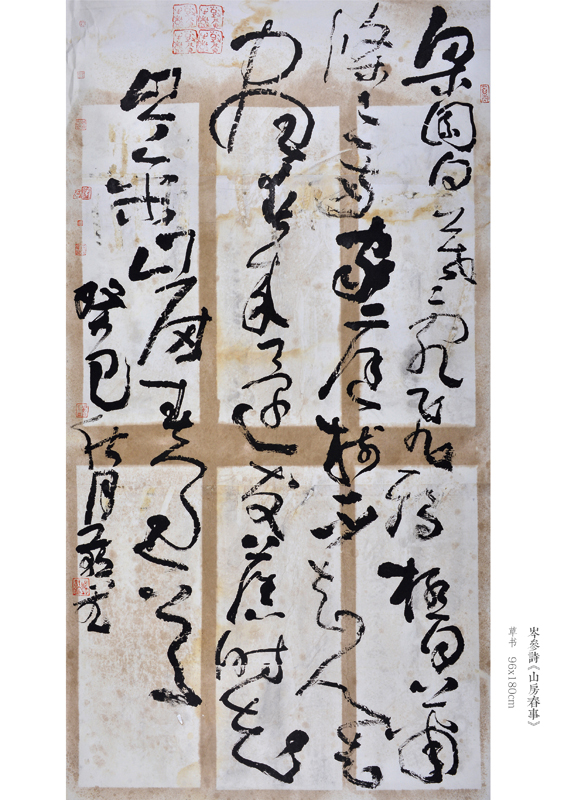 梁園日暮亂飛鴉極目蕭
條三兩家庭樹不知人去
盡春來還發舊時花
山房春事
癸巳 月
岑參詩《山房春事》
草书 96x180cm